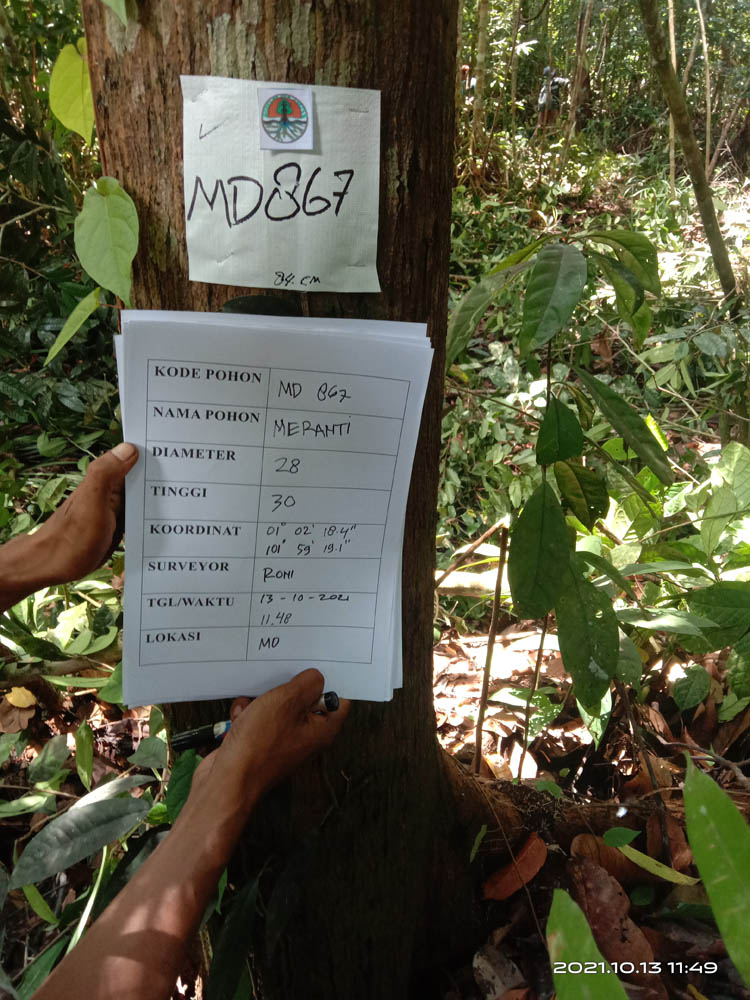 MD867
84 cm
KODE POHON MD 867
NAMA POHON MERANTI
DIAMETER 28
TINGGI 30
KOORDINAT 01° 02' 18.4"
101° 59' 19.1"
SURVEYOR RONI
TGL/WAKTU 13 - 10 - 2021
11.48
LOKASI MD
2021.10.13 11:49